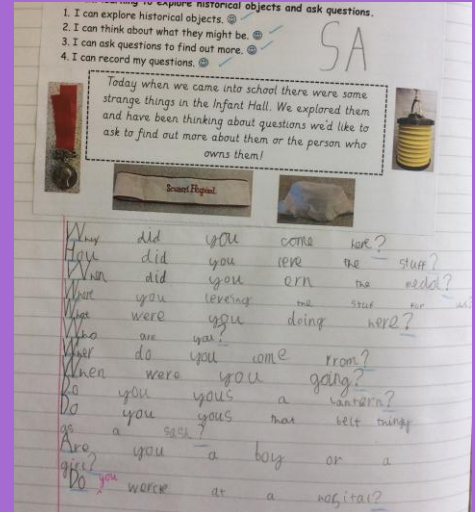 explore historical objects and ask questions.
1. I can explore historical objects.
2. I can think about what they might be.
3. I can ask questions to find out more.
4. I can record my questions.
SA
Today when we came into school there were some
strange things in the Infant Hall. We explored them
and have been thinking about questions we'd like to
ask to find out more about them or the person who
owns them!
Scutari Hospital
Why did you come here?
How did you leve the stuff?
When did you ern the medal?
Where you leveing the stuf for
What were you doing here?
Who are you?
Wher do you come from?
When were you going?
Do you yous a lantern?
Do you yous that belt thingy
as a sash?
Are you a boy or a
girl?
Do you werce at a hospital?